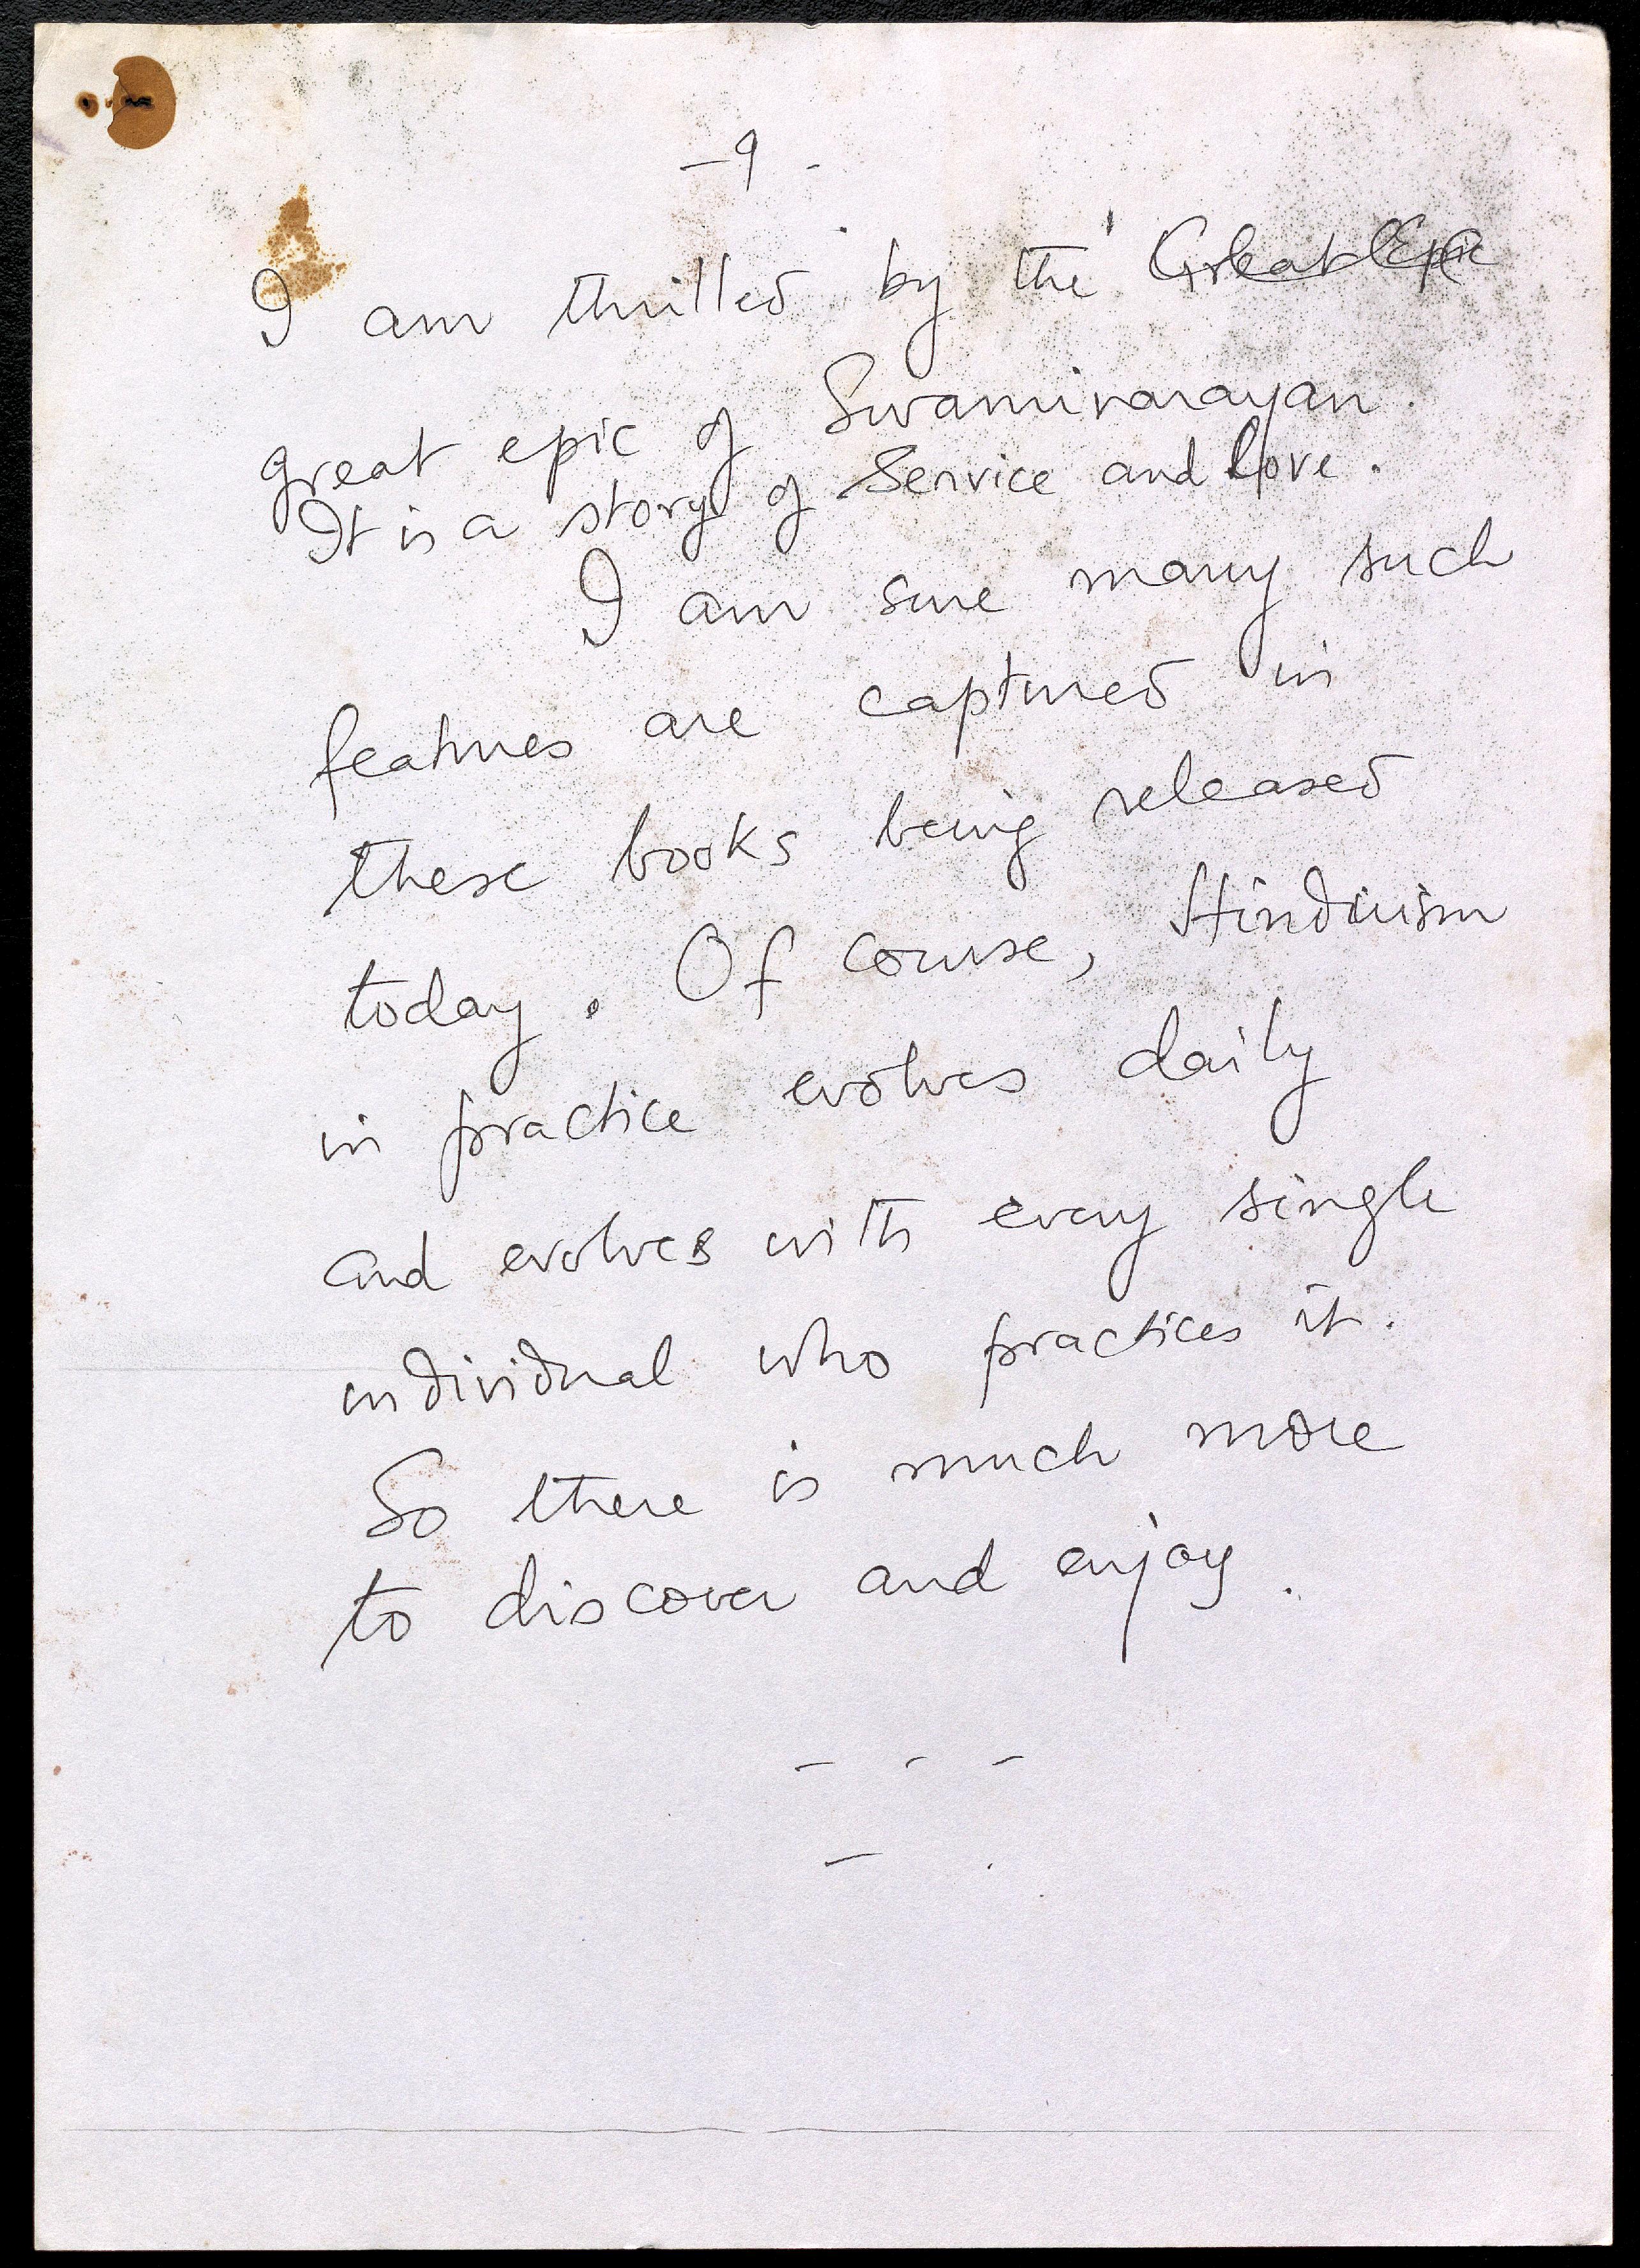 - 9 -
I am thrilled by the Great Epic
great epic of Swaminarayan.
It is a story of Service and love.
I am sure many such
features are captured in
these books being released
today. Of course, Hinduism
in practice evolves daily
and evolves with every single
individual who practices it.
So there is much more
to discover and enjoy.